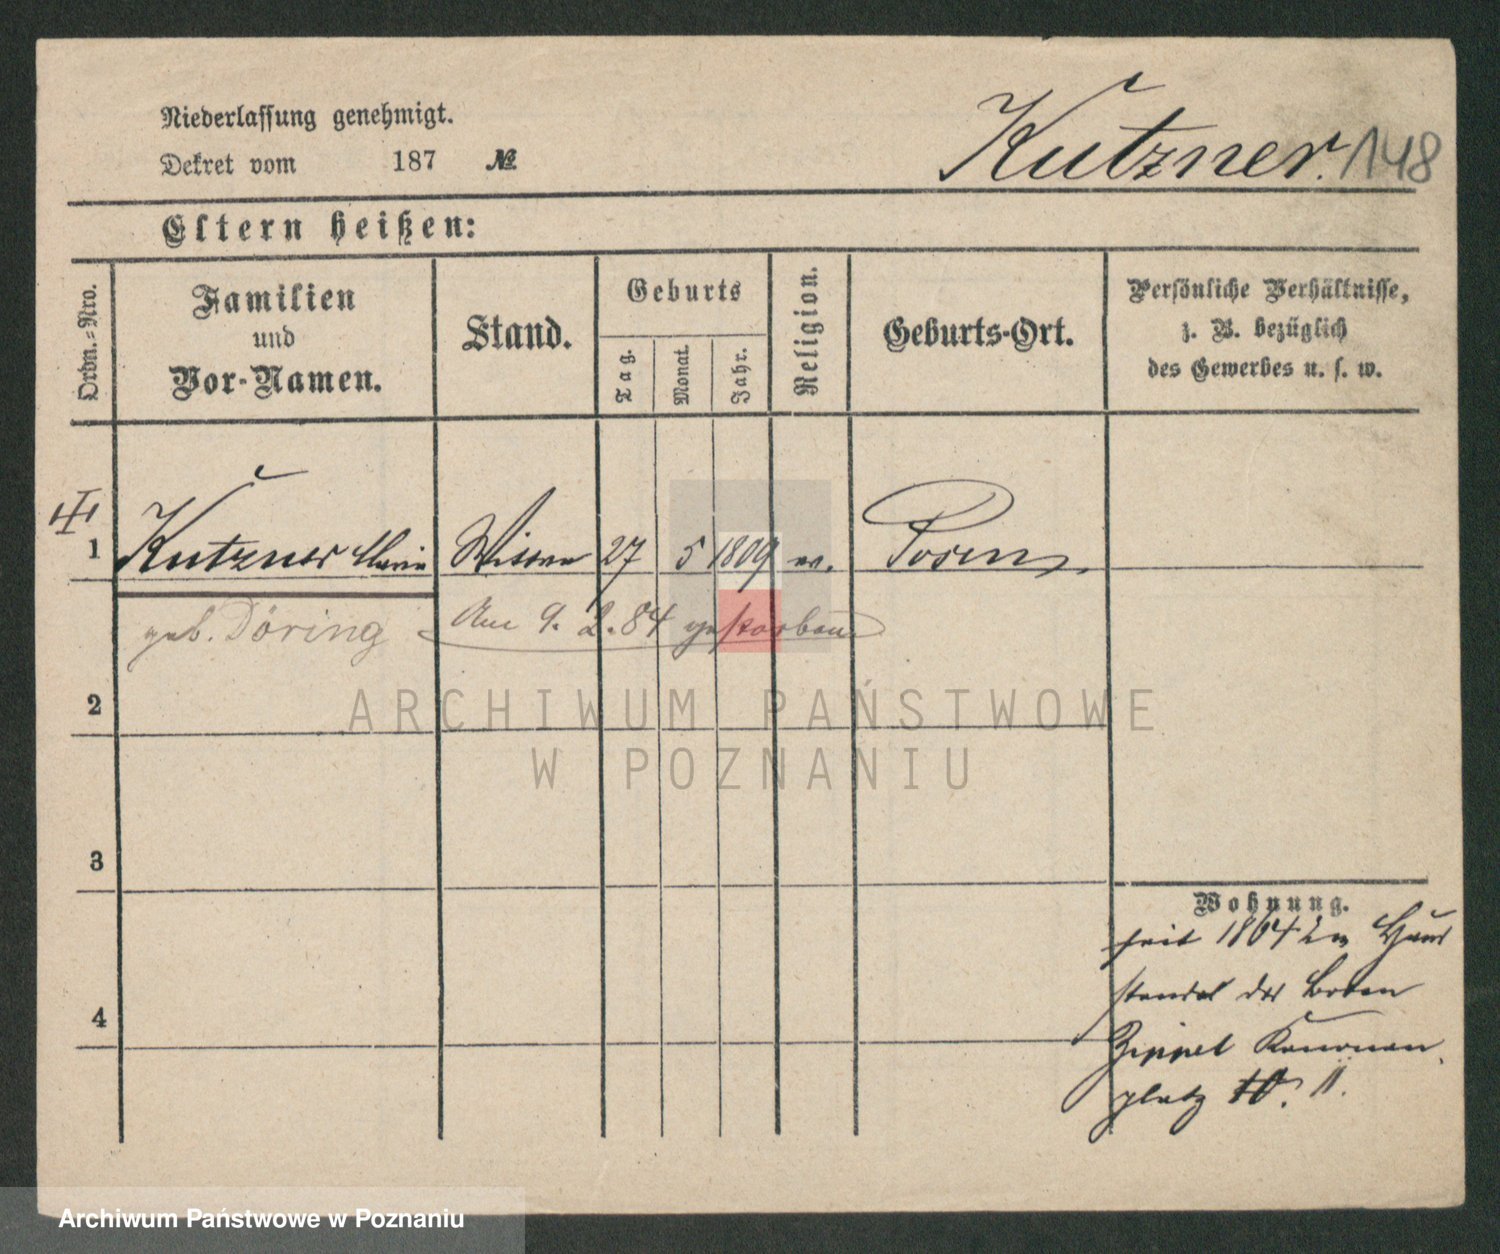 Niederlassung genehmigt.
Dekret vom 187 №
Kutzner. 148
Eltern heißen:
Ordn.-Nro.
Familien
und
Vor-Namen.
Stand.
Geburts
Tag.
Monat.
Jahr.
Religion.
Geburts-Ort.
Persönliche Verhältnisse,
z. B. bezüglich
des Gewerbes u. s. w.
1 Kutzner Maria Wittwe 27 5 1809 ev. Posen
geb. Döring Am 9. 2. 84 gestorben
2
ARCHIWUM PAŃSTWOWE
W POZNANIU
3
Wohnung.
seit 1864 im Haus
stande des Boten
Zippel Kanonen
platz 10. II.
4
Archiwum Państwowe w Poznaniu